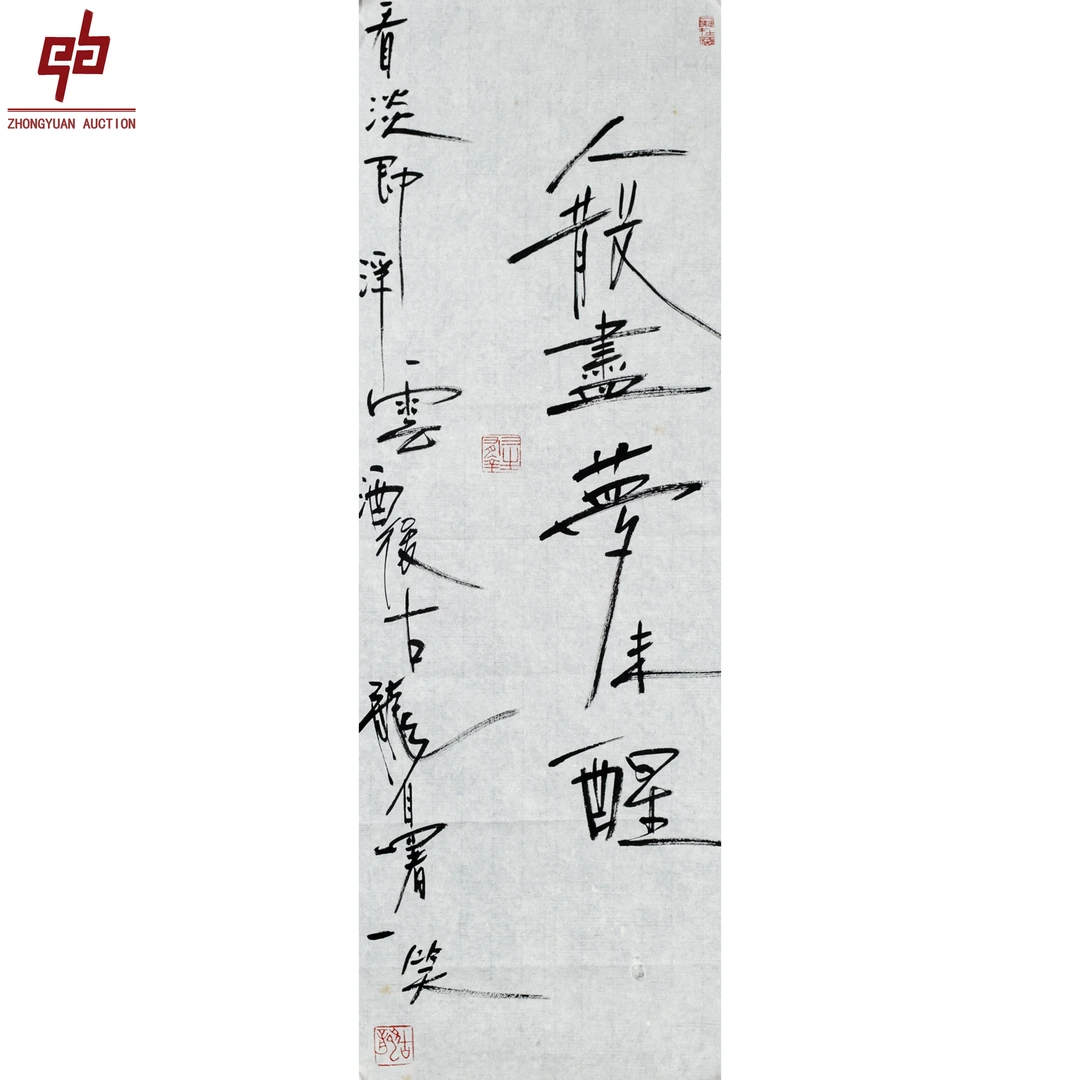 人散盡夢未醒
看淡即浮雲酒後古龍自署一笑
ZHONGYUAN AUCTION